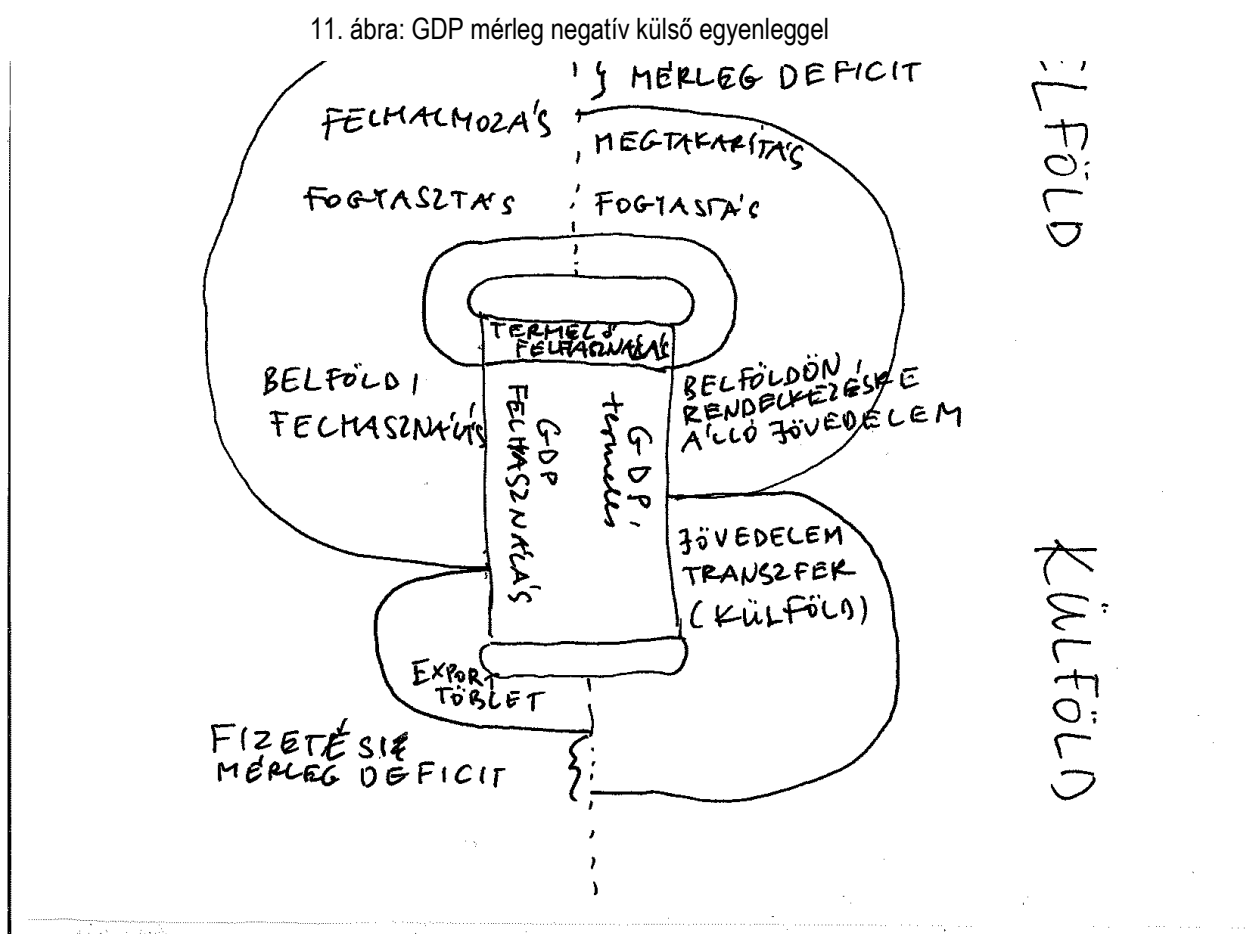 11. ábra: GDP mérleg negatív külső egyenleggel
MÉRLEG DEFICIT
FELHALMOZÁS
MEGTAKARÍTÁS
FOGYASZTÁS
FOGYASTÁS
TERMELŐ
FELHASZNÁLÁS
BELFÖLDI
FELHASZNÁLÁS
GDP
FELHASZNÁLÁS
GDP
termelés
BELFÖLDÖN
RENDELKEZÉSRE
ÁLLÓ JÖVEDELEM
JÖVEDELEM
TRANSZFER
(KÜLFÖLD)
EXPORT
TÖBLET
FIZETÉSI
MÉRLEG DEFICIT
ELFÖLD
KÜLFÖLD